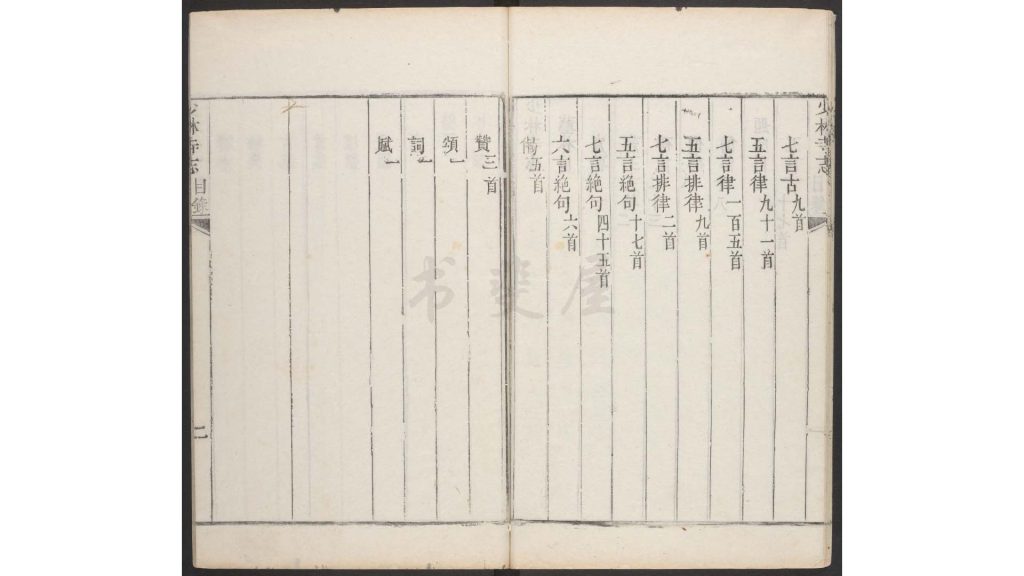 少林寺志
七言古九首
五言律九十一首
七言律一百五首
五言排律九首
七言排律二首
五言絶句十七首
七言絶句四十五首
六言絶句六首
偈五首
贊三首
頌一
詞一
賦一
少林寺志
目錄
二
书斐屋